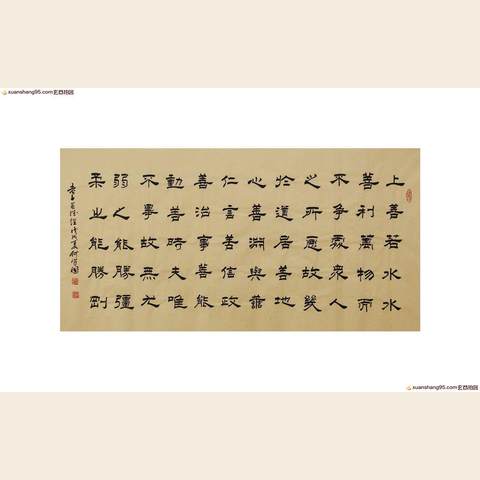 xuanshang95.com
上善若水水
善利萬物而
不爭處衆人
之所惡故幾
於道居善地
心善淵與善
仁言善信政
善治事善能
動善時夫唯
不爭故無尤
弱之能勝彊
柔之能勝剛
老子道德經戊戌夏何
xuanshang95.com